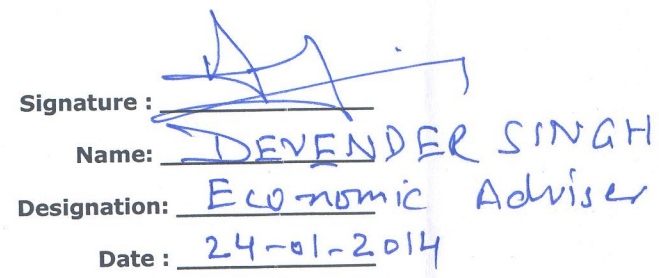 Signature :
Name: DEVENDER SINGH
Designation: Economic Adviser
Date : 24-01-2014